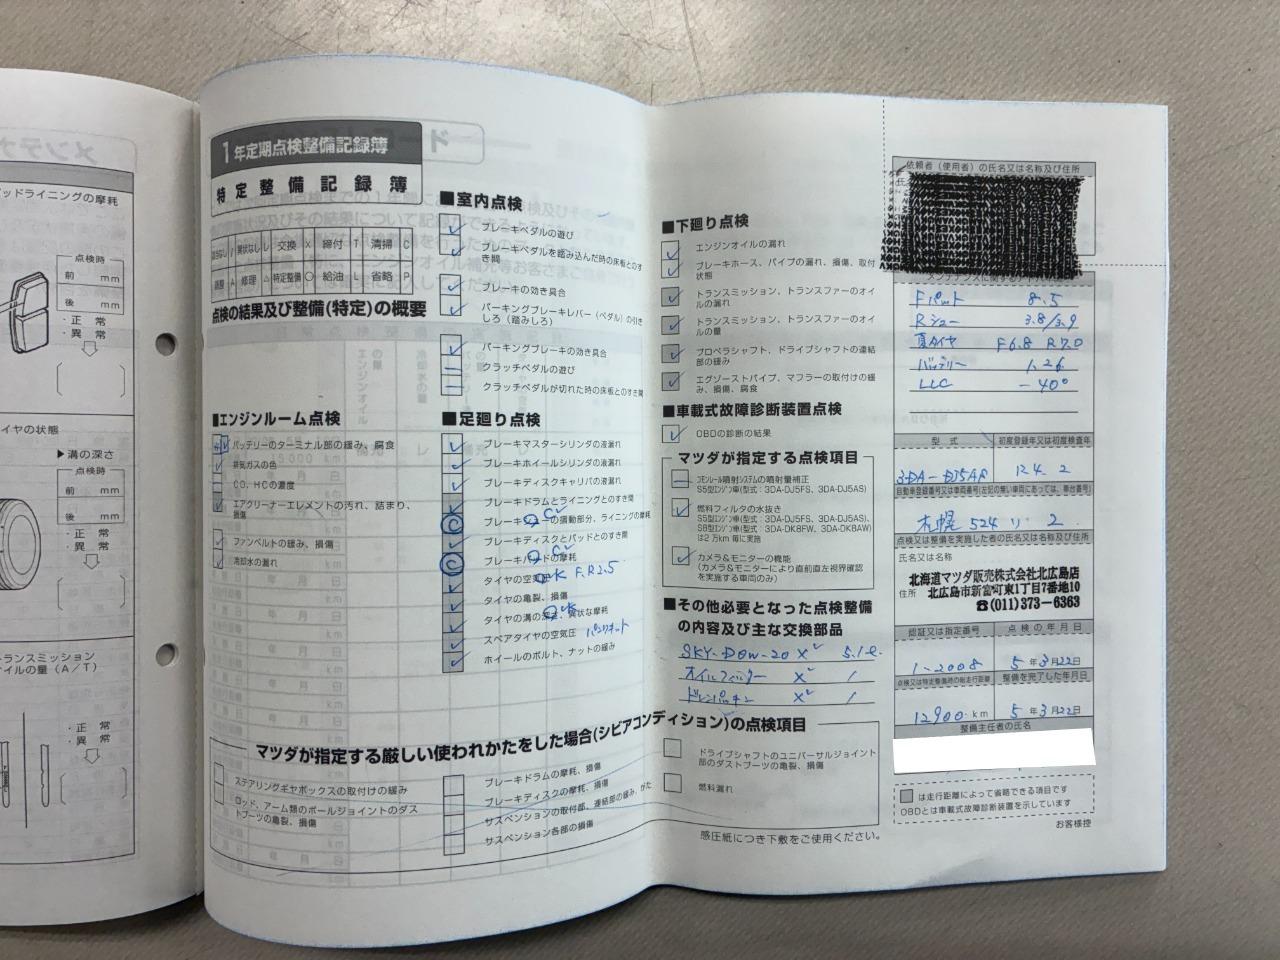 ッドライニングの摩耗
点検時
前 mm
後 mm
・正 常
・異 常
イヤの状態
▶溝の深さ
点検時
前 mm
後 mm
・正 常
・異 常
ランスミッション
イルの量(A/T)
・正 常
・異 常
1年定期点検整備記録簿
特定整備記録簿
異状なし レ 交換 X 締付 T 清掃 C
調整 A 修理 △ 特定整備 ○ 給油 L 省略 P
点検の結果及び整備(特定)の概要
■エンジンルーム点検
バッテリーのターミナル部の緩み、腐食
排気ガスの色
CO、HCの濃度
エアクリーナーエレメントの汚れ、詰まり、
損傷
ファンベルトの緩み、損傷
冷却水の漏れ
■室内点検
ブレーキペダルの遊び
ブレーキペダルを踏み込んだ時の床板とのす
き間
ブレーキの効き具合
パーキングブレーキレバー(ペダル)の引き
しろ(踏みしろ)
パーキングブレーキの効き具合
クラッチペダルの遊び
クラッチペダルが切れた時の床板とのすき間
■足廻り点検
ブレーキマスターシリンダの液漏れ
ブレーキホイールシリンダの液漏れ
ブレーキディスクキャリパの液漏れ
ブレーキドラムとライニングとのすき間
ブレーキシューの摺動部分、ライニングの摩耗
ブレーキディスクとパッドとのすき間
ブレーキパッドの摩耗
タイヤの空気圧 OK F.R2.5
タイヤの亀裂、損傷
タイヤの溝の深さ、異状な摩耗
スペアタイヤの空気圧 パンクキット
ホイールのボルト、ナットの緩み
マツダが指定する厳しい使われかたをした場合(シビアコンディション)の点検項目
ステアリングギヤボックスの取付けの緩み
ロッド、アーム類のボールジョイントのダス
トブーツの亀裂、損傷
ブレーキドラムの摩耗、損傷
ブレーキディスクの摩耗、損傷
サスペンションの取付部、連結部の緩み、がた
サスペンション各部の損傷
ドライブシャフトのユニバーサルジョイント
部のダストブーツの亀裂、損傷
燃料漏れ
■下廻り点検
エンジンオイルの漏れ
ブレーキホース、パイプの漏れ、損傷、取付
状態
トランスミッション、トランスファーのオイ
ルの漏れ
トランスミッション、トランスファーのオイ
ルの量
プロペラシャフト、ドライブシャフトの連結
部の緩み
エグゾーストパイプ、マフラーの取付けの緩
み、損傷、腐食
■車載式故障診断装置点検
OBDの診断の結果
マツダが指定する点検項目
コモンレール噴射システムの噴射量補正
S5型エンジン車(型式:3DA-DJ5FS、3DA-DJ5AS)
燃料フィルタの水抜き
S5型エンジン車(型式:3DA-DJ5FS、3DA-DJ5AS)、
S8型エンジン車(型式:3DA-DK8FW、3DA-DK8AW)
は2万km毎に実施
カメラ&モニターの機能
(カメラ&モニターにより直前直左視界確認
を実施する車両のみ)
■その他必要となった点検整備
の内容及び主な交換部品
SKY-D0W-20 X レ 5.1ℓ
オイルフィルター X レ 1
ドレンパッキン X レ 1
感圧紙につき下敷をご使用ください。
依頼者(使用者)の氏名又は名称及び住所
Fパット 8.5
Rシュー 3.8/3.9
夏タイヤ F6.8 R7.0
バッテリー 1.26
LLC -40°
型 式 初度登録年又は初度検査年
3DA-DJ5AS R4.2
自動車登録番号又は車両番号(左記の無い車両にあっては、車台番号)
札幌 524 り 2
点検又は整備を実施した者の氏名又は名称及び住所
氏名又は名称
北海道マツダ販売株式会社北広島店
住所 北広島市新富町東1丁目7番地10
☎(011)373-6363
認証又は指定番号 点検の年月日
1-2008 5年3月22日
点検又は特定整備時の総走行距離 整備を完了した年月日
12900 km 5年3月22日
整備主任者の氏名
は走行距離によって省略できる項目です
OBDとは車載式故障診断装置を示しています
お客様控